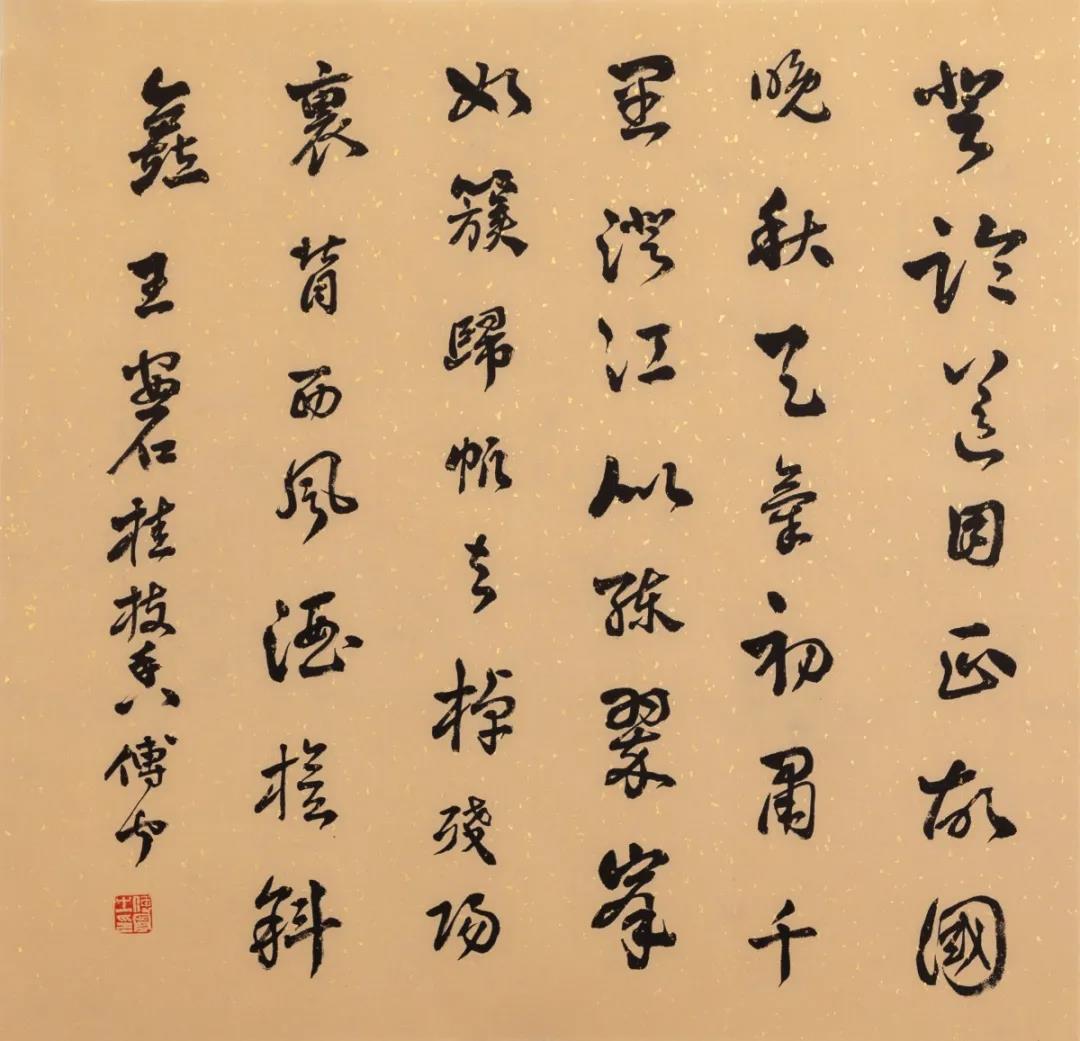 登臨送目正故國
晚秋天氣初肅千
里澄江似練翠峯
如簇歸帆去棹殘陽
裏背西風酒旗斜
矗 王安石桂枝香 傅